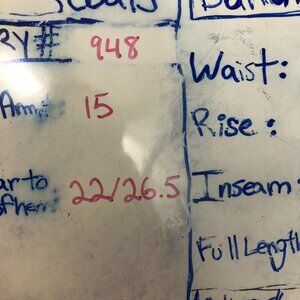 RY# 948
Arm: 15
ar to
of hem: 22/26.5
Waist:
Rise:
Inseam:
Full Length